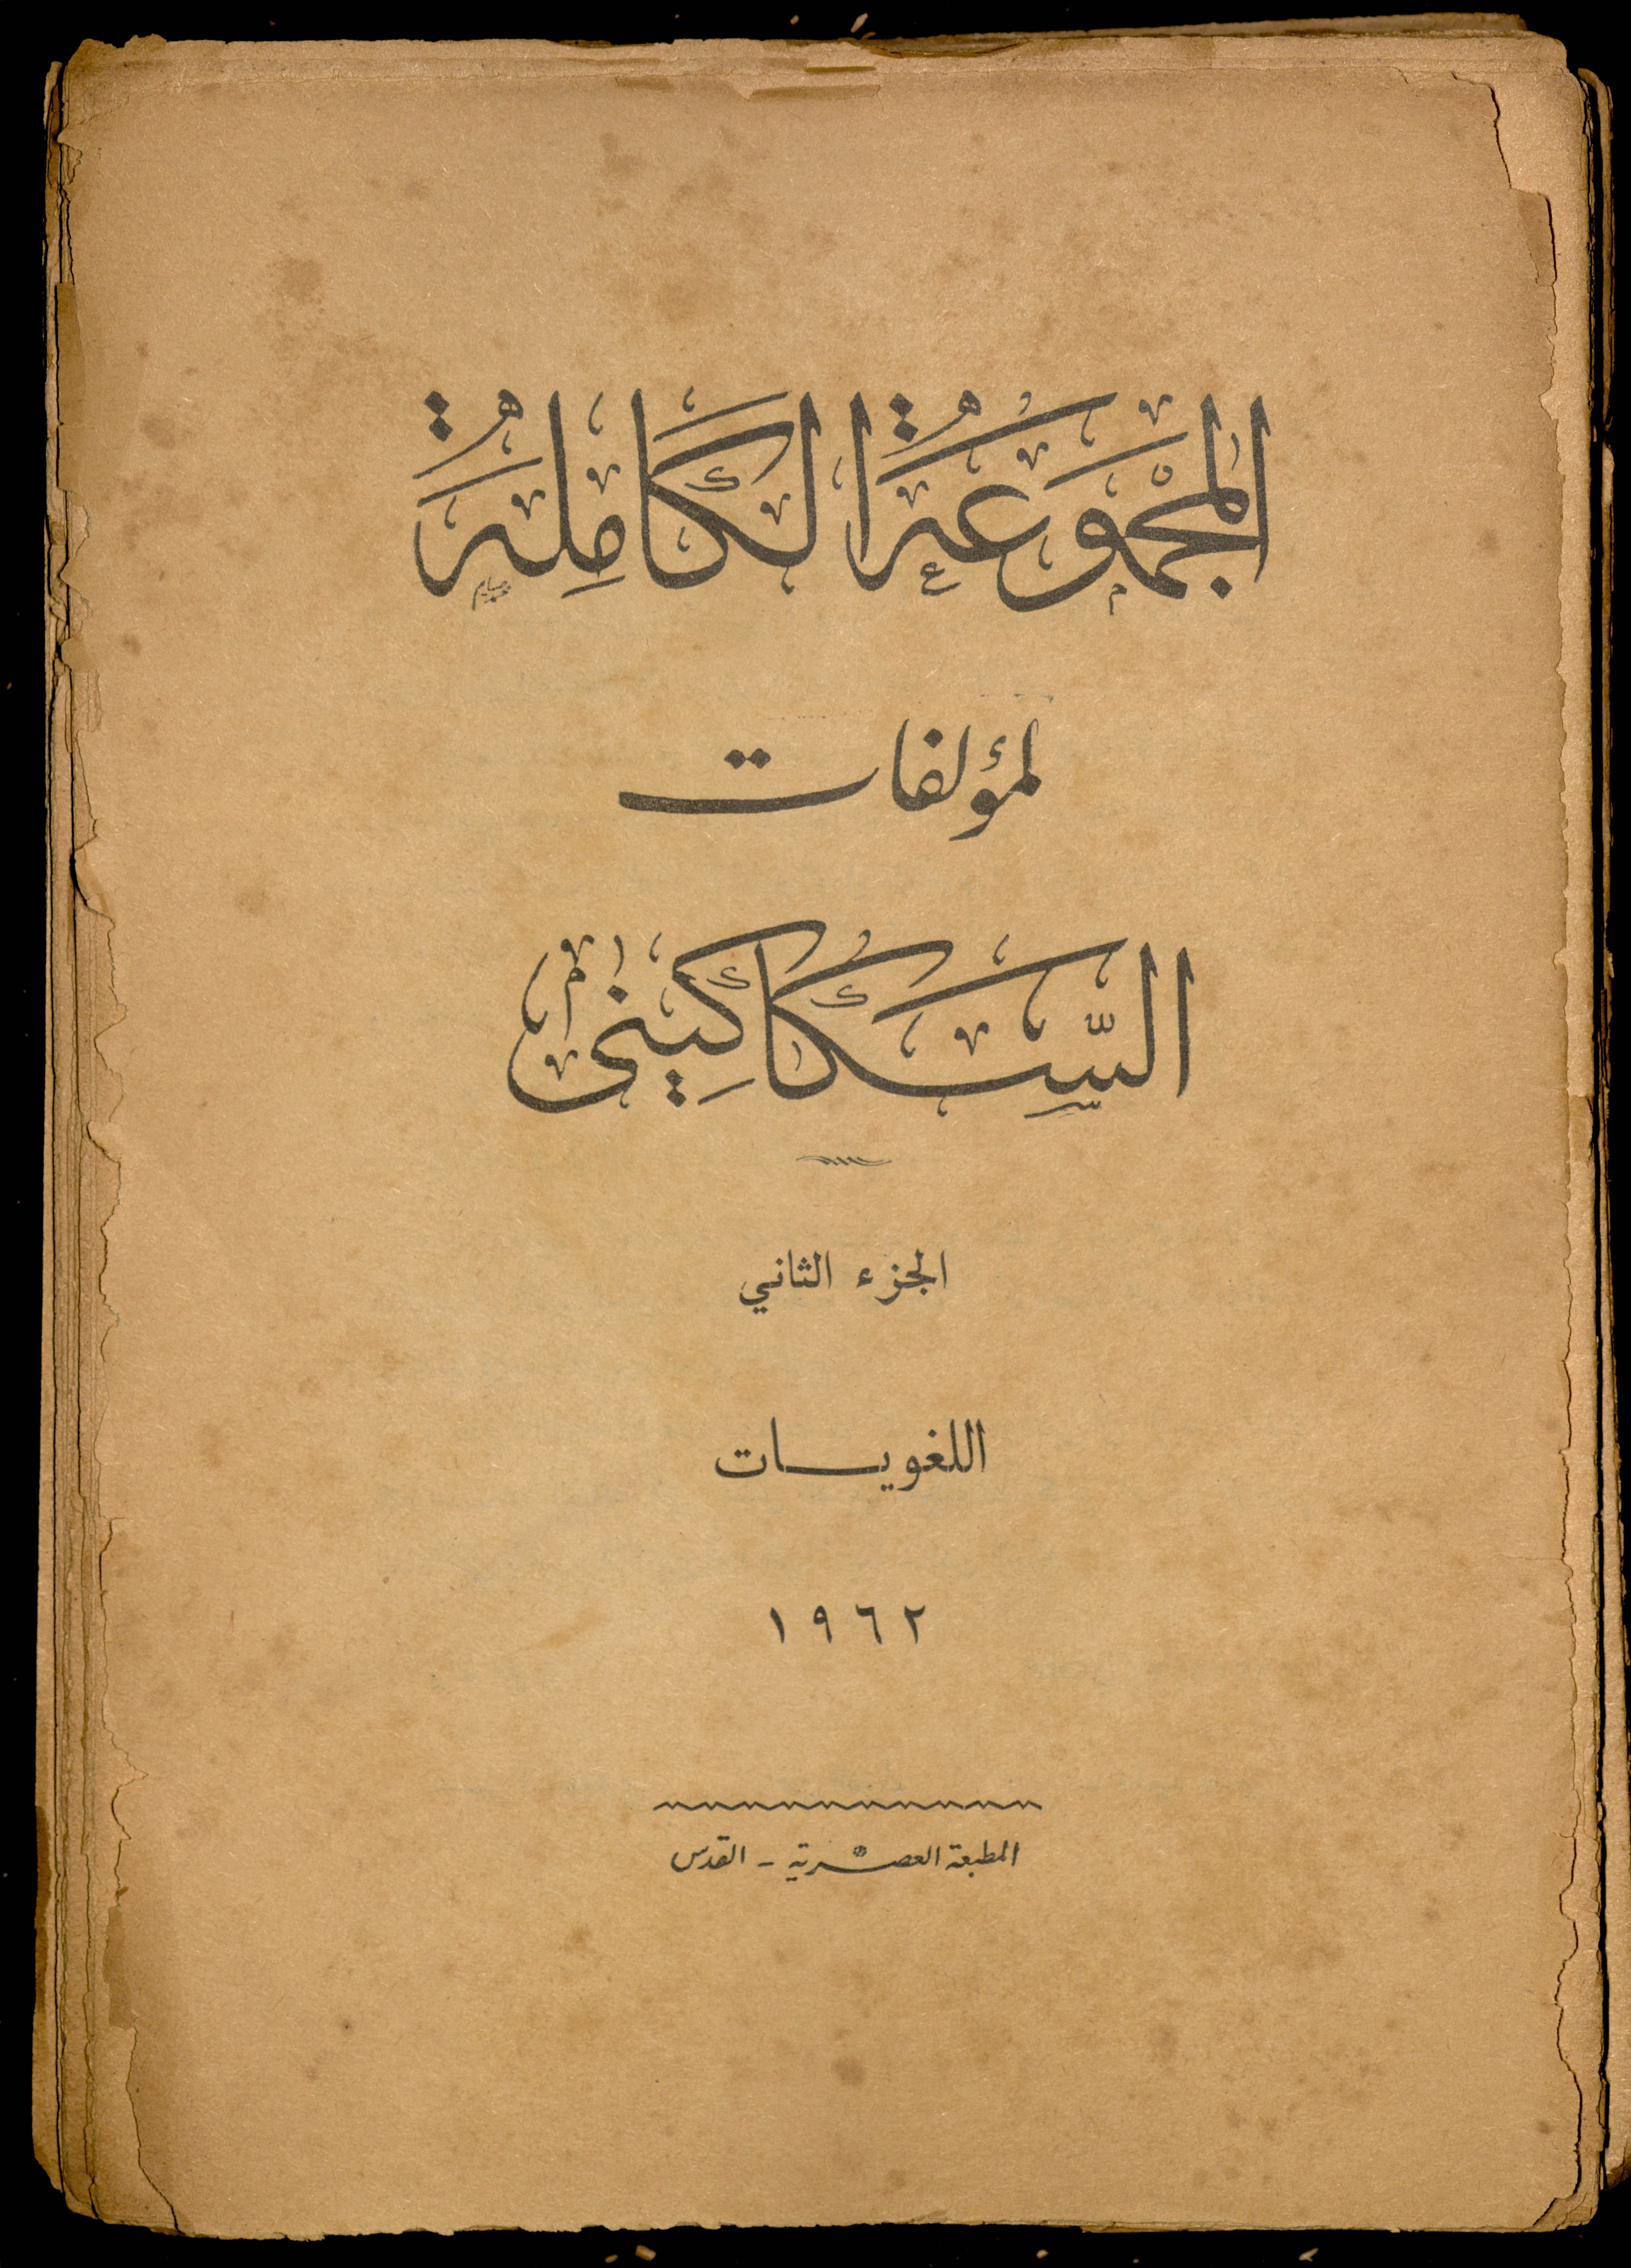 المجموعة الكاملة
لمؤلفات
السكاكيني
الجزء الثاني
اللغويات
١٩٦٢
المطبعة العصرية - القدس